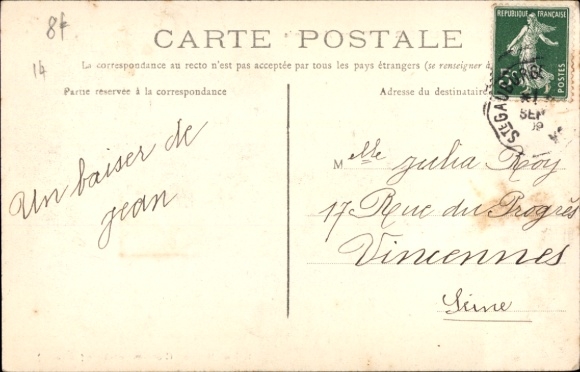 8f
14
CARTE POSTALE
La correspondance au recto n'est pas acceptée par tous les pays étrangers (se renseigner à
Partie réservée à la correspondance
Adresse du destinataire
REPUBLIQUE FRANÇAISE
POSTES
SEP
09
Un baiser de
Jean
Mlle Julia Roy
17 Rue du Progrès
Vincennes
Seine